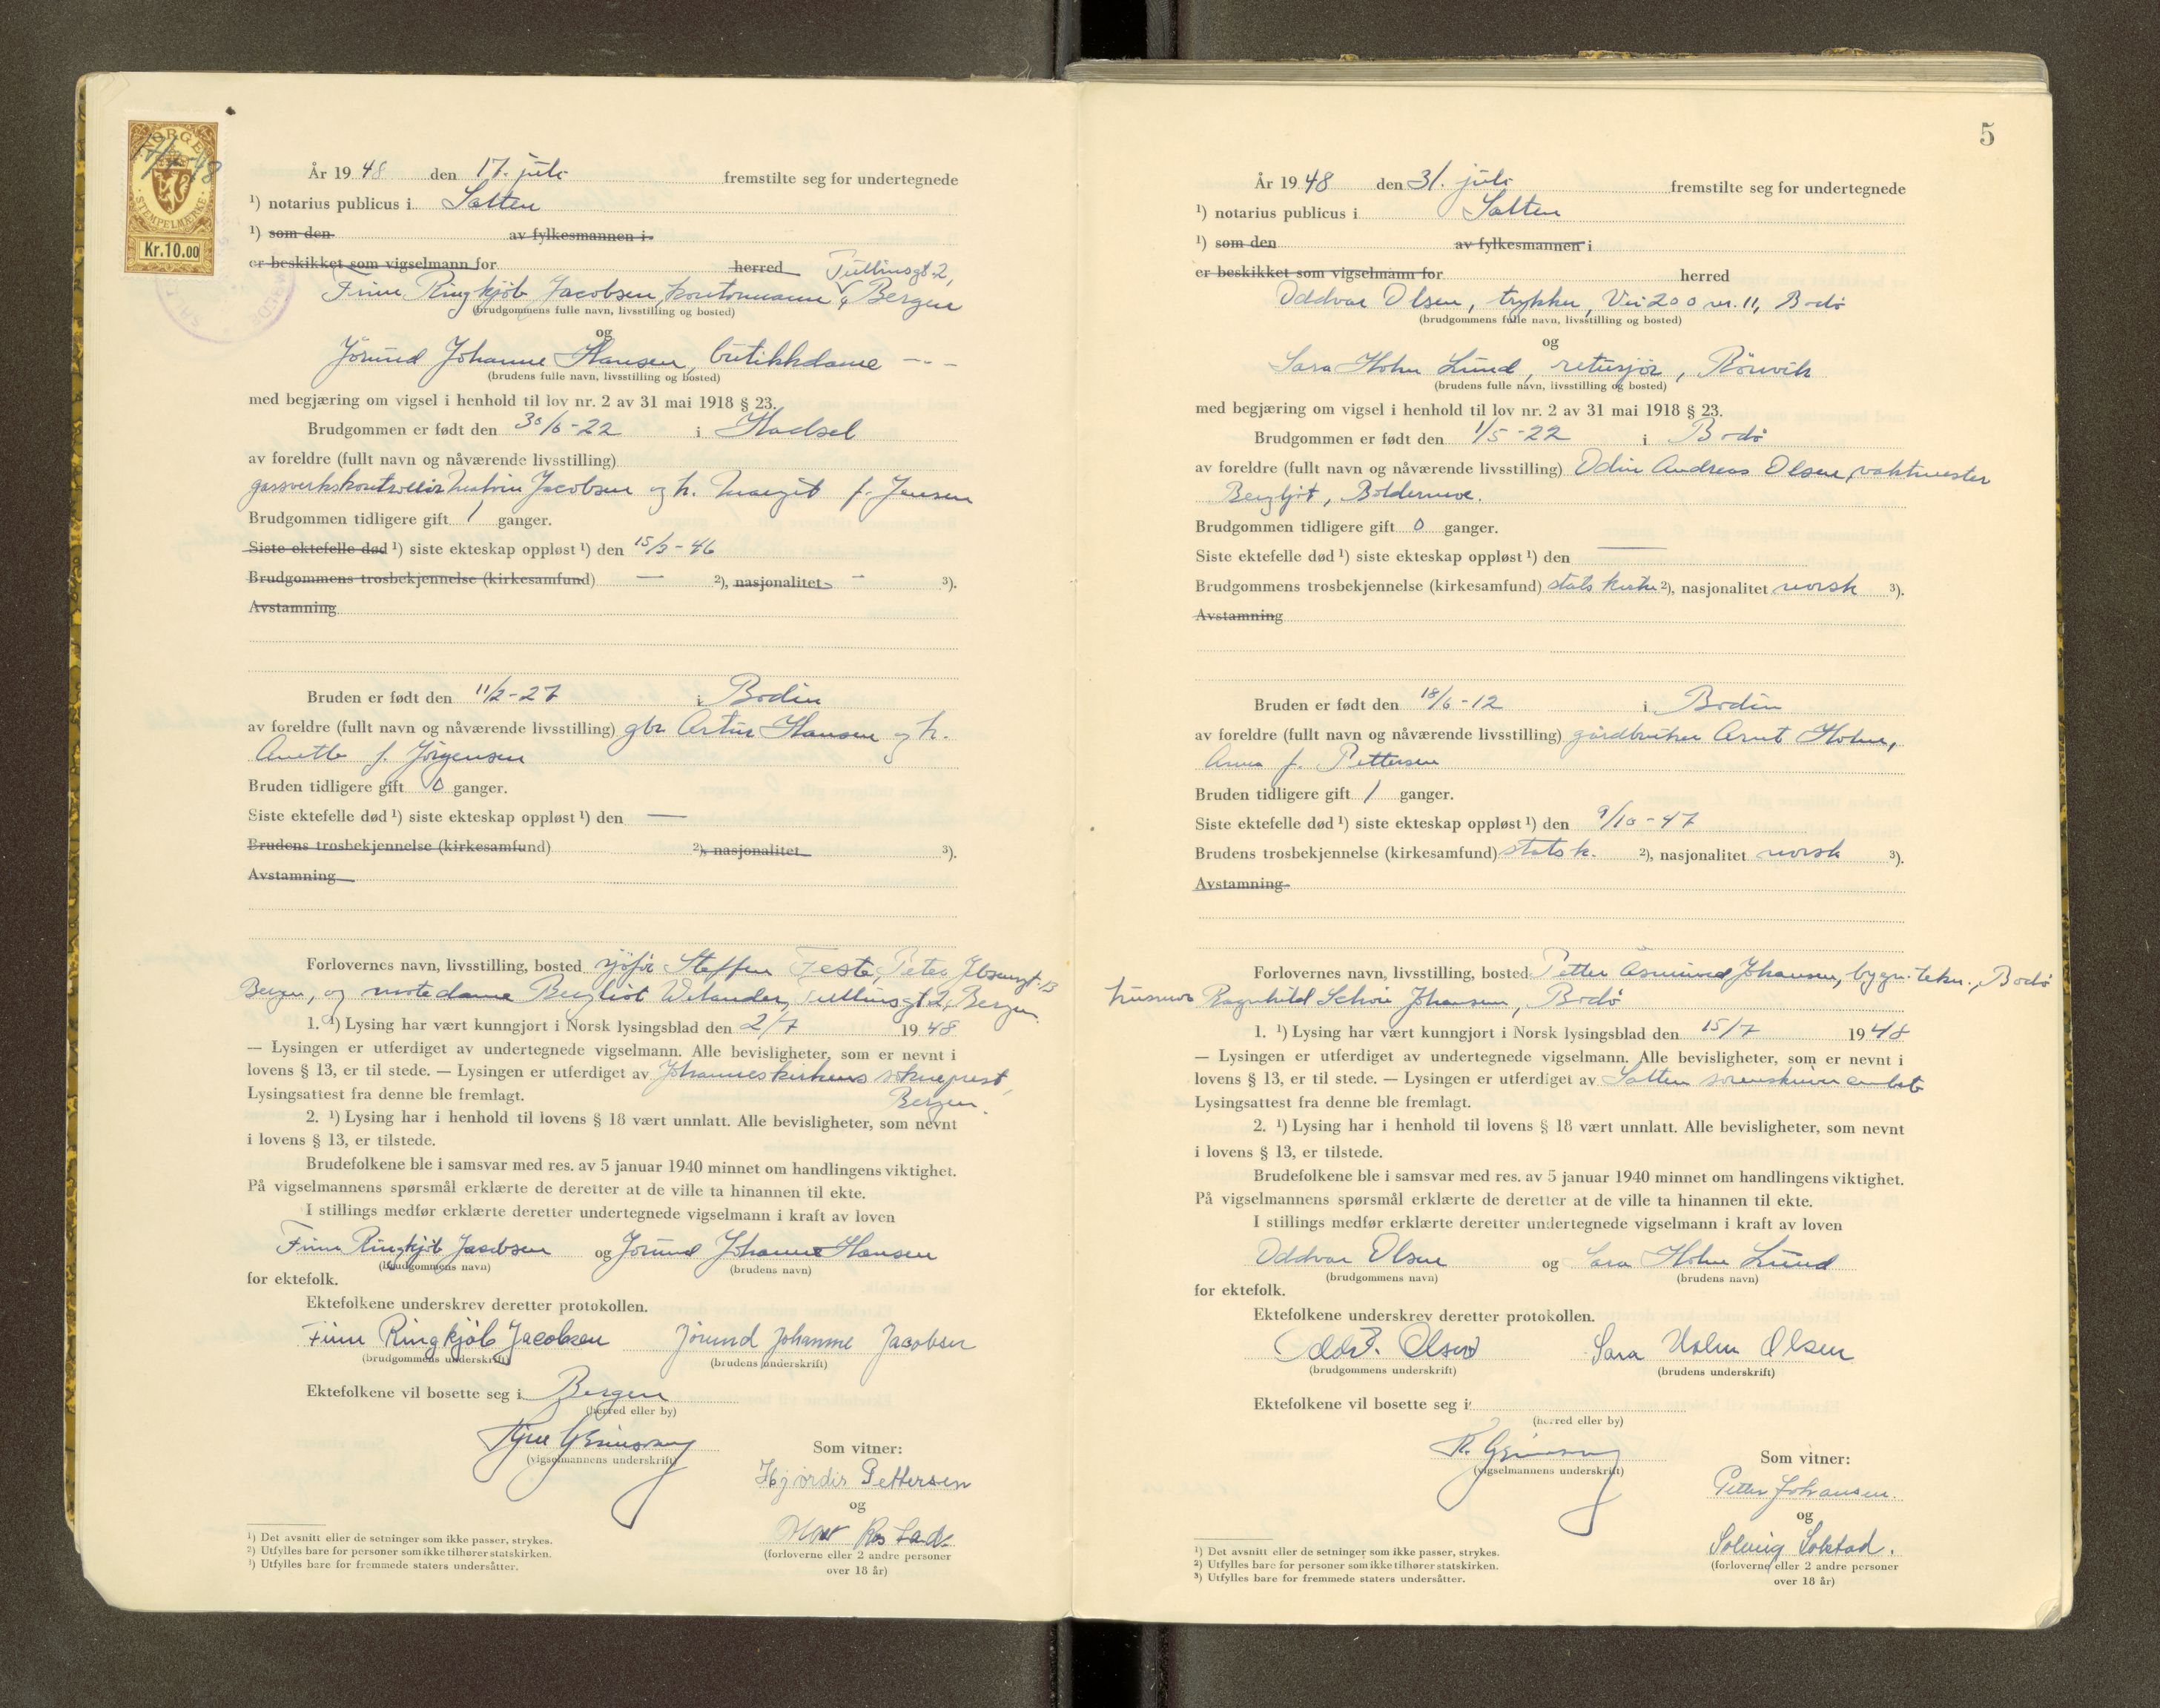 NORGE
17/7-48
STEMPELMÆRKE
Kr.10.00
År 1948 den 17. juli fremstilte seg for undertegnede
¹) notarius publicus i Salten
¹) som den av fylkesmannen i
er beskikket som vigselmann for herred Tullinsgt. 2,
Finn Ringkjøb Jacobsen, kontormann, Bergen
(brudgommens fulle navn, livsstilling og bosted)
og
Jorund Johanne Hansen, butikkdame - " -
(brudens fulle navn, livsstilling og bosted)
med begjæring om vigsel i henhold til lov nr. 2 av 31 mai 1918 § 23.
Brudgommen er født den 30/6-22 i Hadsel
av foreldre (fullt navn og nåværende livsstilling)
gassverkskontrollør Jacobsen og h. Margit f. Jensen
Brudgommen tidligere gift 1 ganger.
Siste ektefelle død ¹) siste ekteskap oppløst ¹) den 15/3-46
Brudgommens trosbekjennelse (kirkesamfund) — ²), nasjonalitet — ³).
Avstamning
Bruden er født den 11/2-27 i Bodin
av foreldre (fullt navn og nåværende livsstilling) gbr Artur Hansen og h.
Anette f. Jørgensen
Bruden tidligere gift 0 ganger.
Siste ektefelle død ¹) siste ekteskap oppløst ¹) den —
Brudens trosbekjennelse (kirkesamfund) ²), nasjonalitet ³).
Avstamning
Forlovernes navn, livsstilling, bosted sjøfør Steffen Feste, Peter Jebsensgt. 13
Bergen, og motedame Bergliot Welander, Tullinsgt 2, Bergen.
1. ¹) Lysing har vært kunngjort i Norsk lysingsblad den 2/7 1948
— Lysingen er utferdiget av undertegnede vigselmann. Alle bevisligheter, som er nevnt i
lovens § 13, er til stede. — Lysingen er utferdiget av Johanneskirkens sokneprest,
Lysingsattest fra denne ble fremlagt. Bergen.
2. ¹) Lysing har i henhold til lovens § 18 vært unnlatt. Alle bevisligheter, som nevnt
i lovens § 13, er tilstede.
Brudefolkene ble i samsvar med res. av 5 januar 1940 minnet om handlingens viktighet.
På vigselmannens spørsmål erklærte de deretter at de ville ta hinannen til ekte.
I stillings medfør erklærte deretter undertegnede vigselmann i kraft av loven
Finn Ringkjøb Jacobsen og Jorund Johanne Hansen
(brudgommens navn) (brudens navn)
for ektefolk.
Ektefolkene underskrev deretter protokollen.
Finn Ringkjøb Jacobsen Jorund Johanne Jacobsen
(brudgommens underskrift) (brudens underskrift)
Ektefolkene vil bosette seg i Bergen
(herred eller by)
(vigselmannens underskrift)
Som vitner:
Hjørdis Pettersen
og
(forloverne eller 2 andre personer
over 18 år)
¹) Det avsnitt eller de setninger som ikke passer, strykes.
²) Utfylles bare for personer som ikke tilhører statskirken.
³) Utfylles bare for fremmede staters undersåtter.
5
År 1948 den 31. juli fremstilte seg for undertegnede
¹) notarius publicus i Salten
¹) som den av fylkesmannen i
er beskikket som vigselmann for herred
Oddvar Olsen, trykker, Vei 200 nr. 11, Bodø
(brudgommens fulle navn, livsstilling og bosted)
og
Sara Holm Lund, retusjør, Rørvik
(brudens fulle navn, livsstilling og bosted)
med begjæring om vigsel i henhold til lov nr. 2 av 31 mai 1918 § 23.
Brudgommen er født den 1/5-22 i Bodø
av foreldre (fullt navn og nåværende livsstilling) Odin Andreas Olsen, vaktmester
Bergljot, Boldermoe.
Brudgommen tidligere gift 0 ganger.
Siste ektefelle død ¹) siste ekteskap oppløst ¹) den —
Brudgommens trosbekjennelse (kirkesamfund) statskirke ²), nasjonalitet norsk ³).
Avstamning
Bruden er født den 18/6-12 i Bodin
av foreldre (fullt navn og nåværende livsstilling) gårdbruker Arnt Holm,
Anna f. Pettersen
Bruden tidligere gift 1 ganger.
Siste ektefelle død ¹) siste ekteskap oppløst ¹) den 9/10-47
Brudens trosbekjennelse (kirkesamfund) statsk. ²), nasjonalitet norsk ³).
Avstamning
Forlovernes navn, livsstilling, bosted Petter Åsmund Johansen, bygn. tekn., Bodø
husmor Ragnhild Johansen, Bodø
1. ¹) Lysing har vært kunngjort i Norsk lysingsblad den 15/7 1948
— Lysingen er utferdiget av undertegnede vigselmann. Alle bevisligheter, som er nevnt i
lovens § 13, er til stede. — Lysingen er utferdiget av Salten sorenskriverembete
Lysingsattest fra denne ble fremlagt.
2. ¹) Lysing har i henhold til lovens § 18 vært unnlatt. Alle bevisligheter, som nevnt
i lovens § 13, er tilstede.
Brudefolkene ble i samsvar med res. av 5 januar 1940 minnet om handlingens viktighet.
På vigselmannens spørsmål erklærte de deretter at de ville ta hinannen til ekte.
I stillings medfør erklærte deretter undertegnede vigselmann i kraft av loven
Oddvar Olsen og Sara Holm Lund
(brudgommens navn) (brudens navn)
for ektefolk.
Ektefolkene underskrev deretter protokollen.
Oddv. Olsen Sara Holm Olsen
(brudgommens underskrift) (brudens underskrift)
Ektefolkene vil bosette seg i
(herred eller by)
(vigselmannens underskrift)
Som vitner:
Petter Johansen.
og
Solveig Solstad.
(forloverne eller 2 andre personer
over 18 år)
¹) Det avsnitt eller de setninger som ikke passer, strykes.
²) Utfylles bare for personer som ikke tilhører statskirken.
³) Utfylles bare for fremmede staters undersåtter.